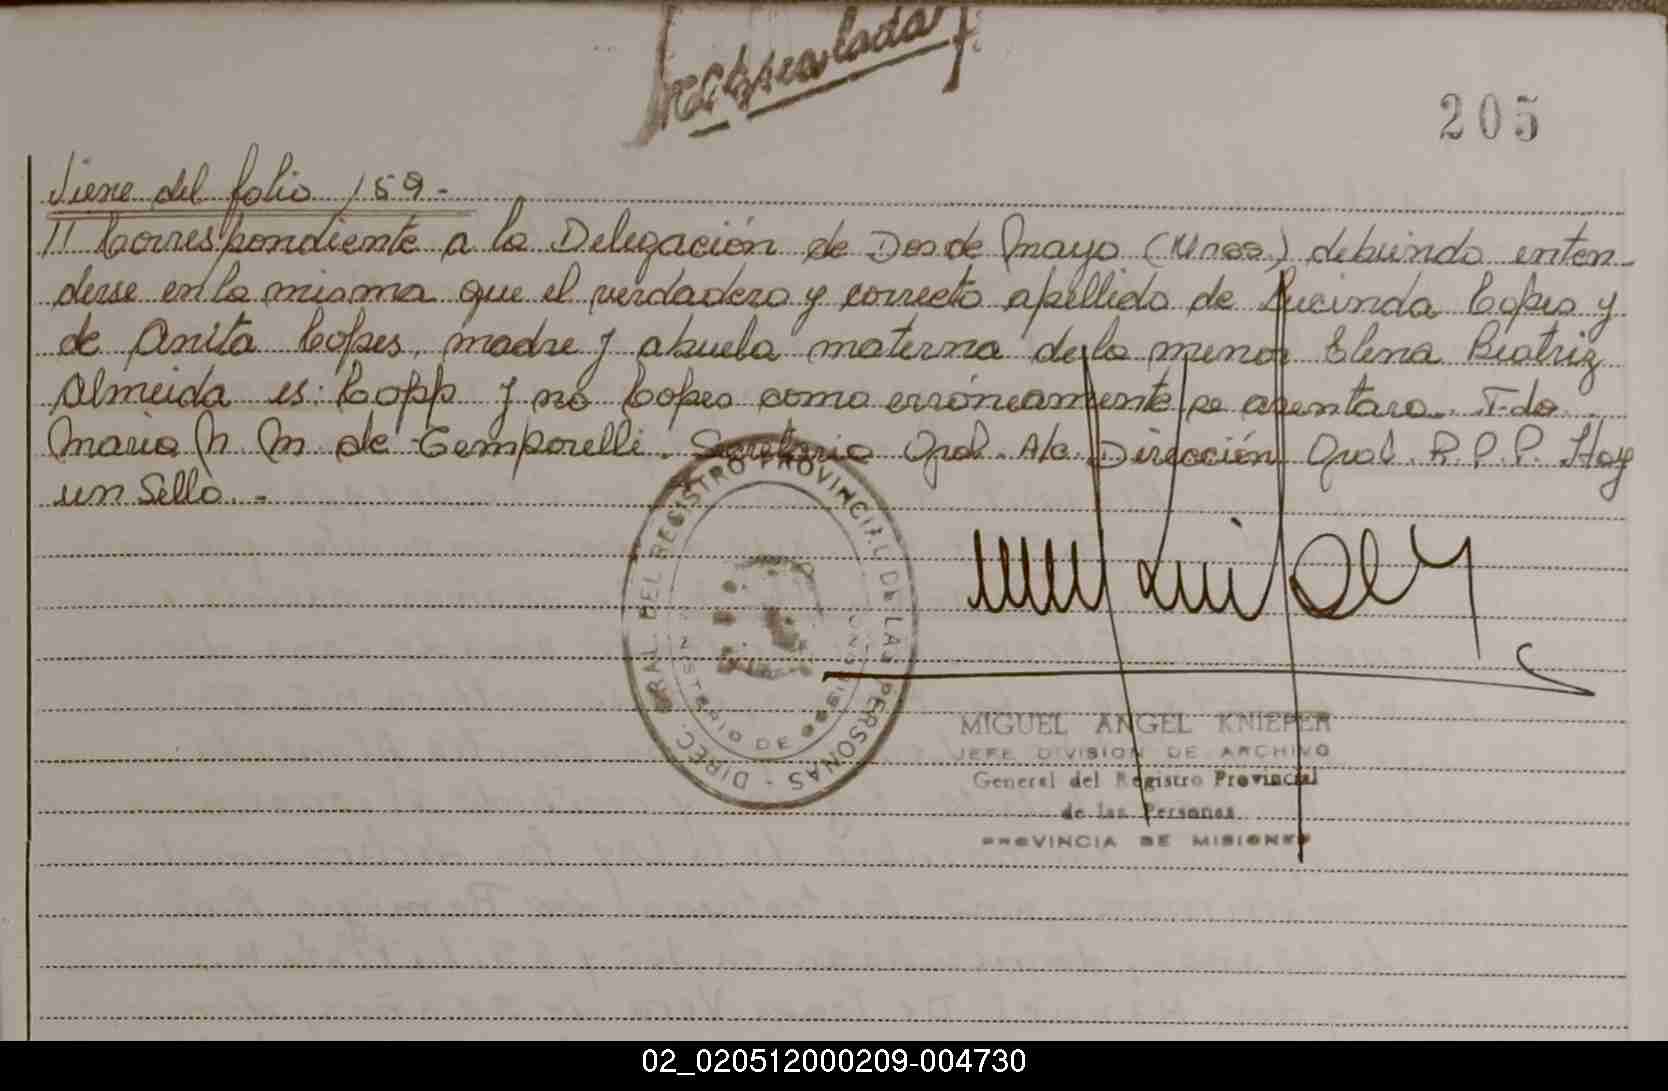 205
Viene del folio 159.-
// Correspondiente a la Delegación de Dos de Mayo (Mnes.) debiendo enten-
derse en la misma que el verdadero y correcto apellido de Lucinda Copes y
de Anita Copes, madre y abuela materna de la menor Elena Beatriz
Almeida es: Copp y no Copes como erróneamente se asentara. Fdo.
Maria N. M. de Temporelli. Secretaria Gral. A/c. Dirección Gral. R.P.P. Hay
un Sello.-
DIREC. GRAL. DEL REGISTRO PROVINCIAL DE LAS PERSONAS -
MINISTERIO DE
MIGUEL ANGEL KNIEPER
JEFE DIVISION DE ARCHIVO
General del Registro Provincial
de las Personas
PROVINCIA DE MISIONES
02_020512000209-004730